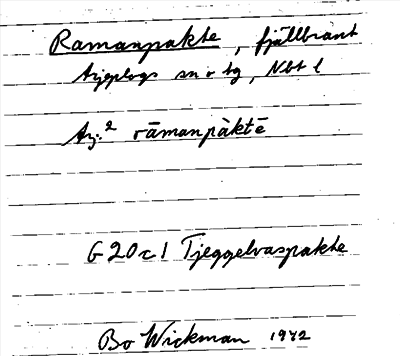 Ramanpakte, fjällbrant
Arjeplogs sn o tg, Nbt l
Arj.² rāmanpàktē
G20c1 Tjeggelvaspakte
Bo Wickman 1942